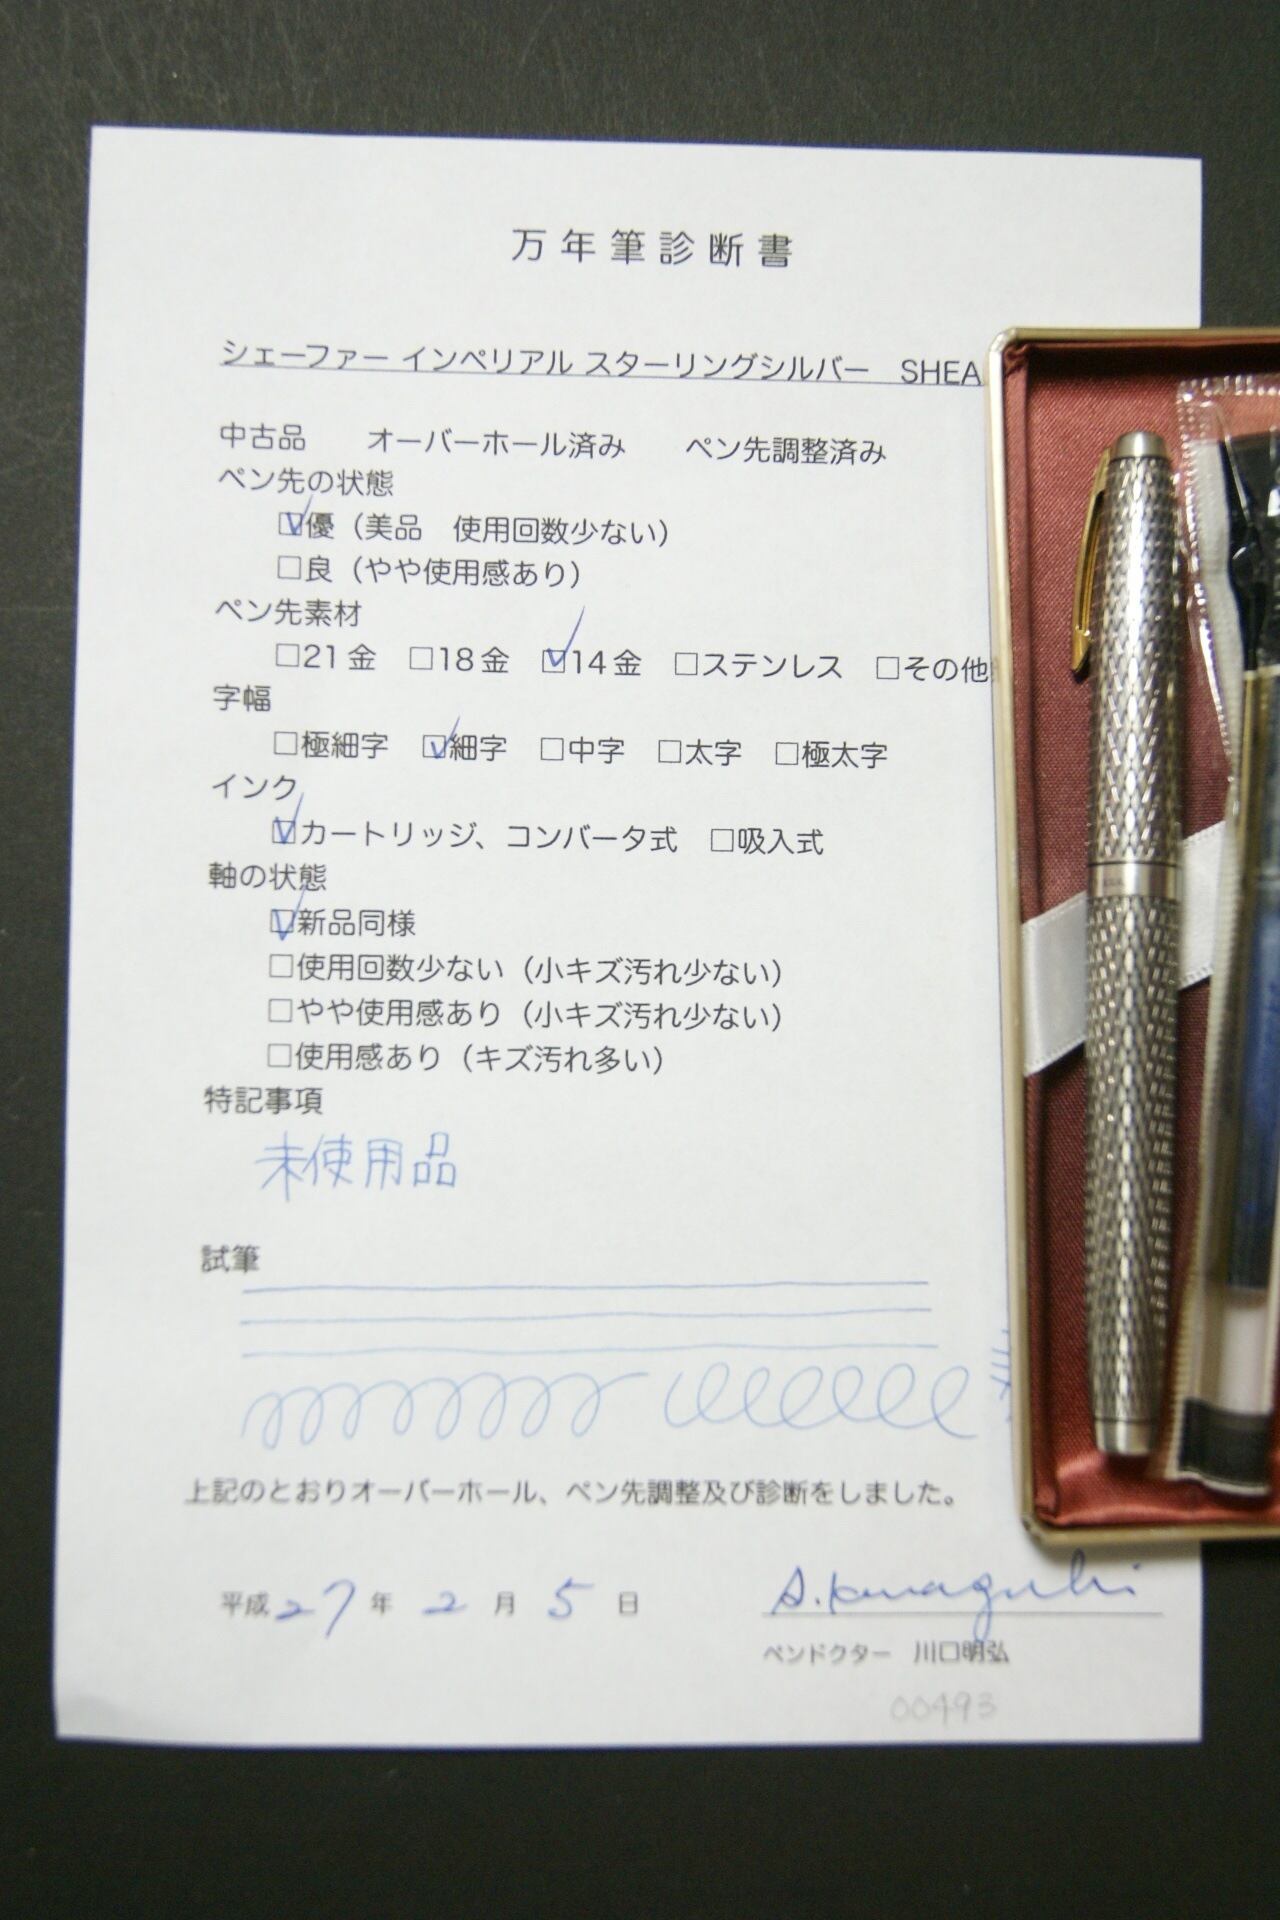 万年筆診断書
シェーファー インペリアル スターリングシルバー　SHEA
中古品　オーバーホール済み　ペン先調整済み
ペン先の状態
☑優（美品　使用回数少ない）
□良（やや使用感あり）
ペン先素材
□21金　□18金　☑14金　□ステンレス　□その他
字幅
□極細字　☑細字　□中字　□太字　□極太字
インク
☑カートリッジ、コンバータ式　□吸入式
軸の状態
☑新品同様
□使用回数少ない（小キズ汚れ少ない）
□やや使用感あり（小キズ汚れ少ない）
□使用感あり（キズ汚れ多い）
特記事項
未使用品
試筆
上記のとおりオーバーホール、ペン先調整及び診断をしました。
平成27年2月5日　A.Kawaguchi
ペンドクター　川口明弘
00493